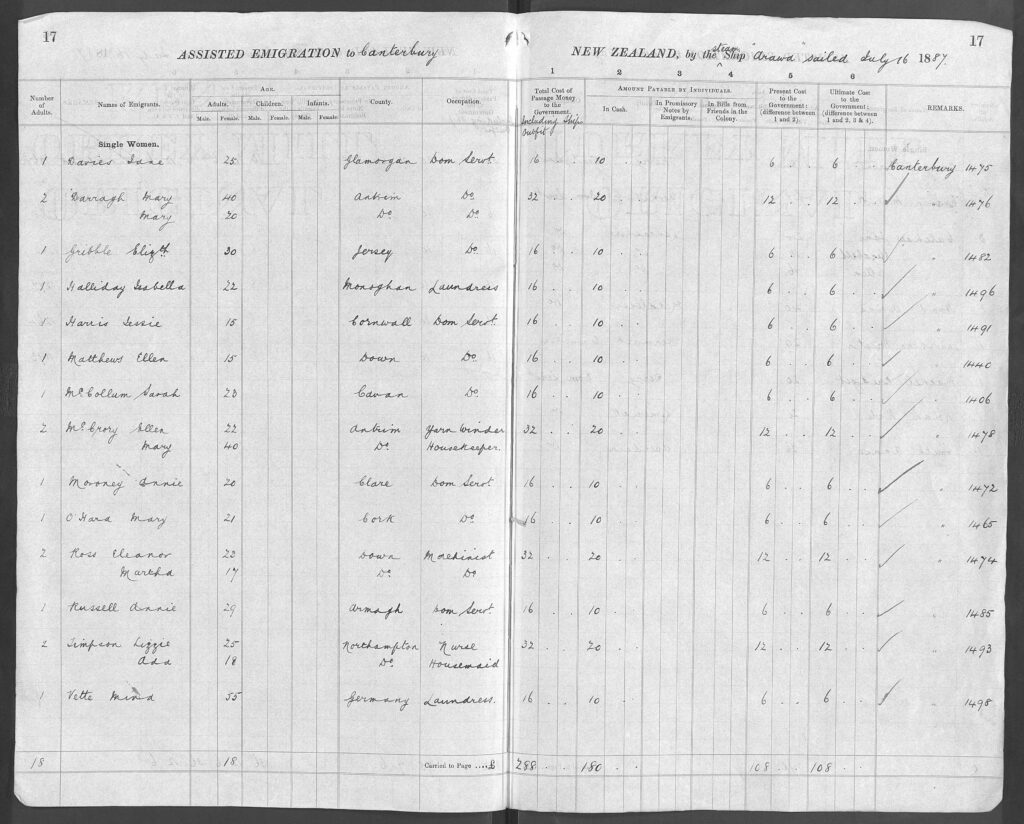 17
17
ASSISTED EMIGRATION to Canterbury NEW ZEALAND, by the steam Ship "Arawa" sailed July 16 1887.
1 2 3 4 5 6
Number of Adults. Names of Emigrants. Age. County. Occupation. Total Cost of Passage Money to the Government. Including Ship Outfit Amount Payable by Individuals. Present Cost to the Government: (difference between 1 and 2). Ultimate Cost to the Government: (difference between 1 and 2, 3 & 4). REMARKS.
Adults. Children. Infants. In Cash. In Promissory Notes by Emigrants. In Bills from Friends in the Colony.
Male. Female. Male. Female. Male. Female.
Single Women.
1 Davies Jane 25 Glamorgan Dom Servt. 16 10 6 6 Canterbury 1475
2 Darragh Mary 40 Antrim Do 32 20 12 12 " 1476
Mary 20 Do Do
1 Gribble Elizth 30 Jersey Do 16 10 6 6 " 1482
1 Halliday Isabella 22 Monoghan Laundress 16 10 6 6 " 1496
1 Harris Jessie 15 Cornwall Dom Servt. 16 10 6 6 " 1491
1 Matthews Ellen 15 Down Do 16 10 6 6 " 1440
1 McCollum Sarah 23 Cavan Do 16 10 6 6 " 1406
2 McCrory Ellen 22 Antrim Yarn Winder 32 20 12 12 " 1478
Mary 40 Do Housekeeper.
1 Moroney Annie 20 Clare Dom Servt 16 10 6 6 " 1472
1 O'Hara Mary 21 Cork Do 16 10 6 6 " 1465
2 Ross Eleanor 23 Down Machinist 32 20 12 12 " 1474
Martha 17 Do Do
1 Russell Annie 29 Armagh Dom Servt. 16 10 6 6 " 1485
2 Simpson Lizzie 25 Northampton Nurse 32 20 12 12 " 1493
Ada 18 Do Housemaid
1 Vette Mina 55 Germany Laundress. 16 10 6 6 " 1498
18 18 Carried to Page ....£ 288 180 108 108